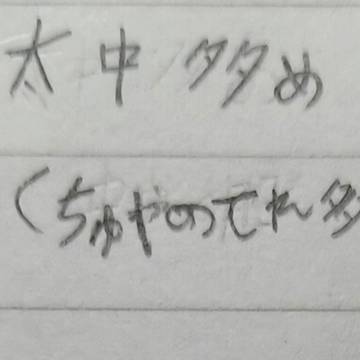 太中 多め
(ちゅやのてれ多